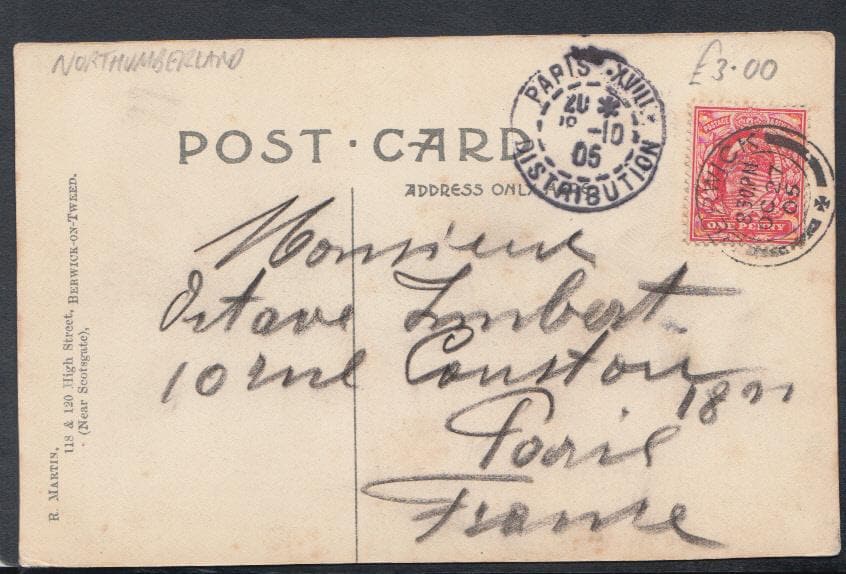 NORTHUMBERLAND
£3.00
POST·CARD
ADDRESS ONLY
PARIS·XVIII
20 *
-10
05
DISTRIBUTION
POSTAGE
ONE PENNY
WICK
8 30 PM
OC 27
05
Monsieur
Octave Imbert
10 rue Coustou
18
Paris
France
R. MARTIN,
118 & 120 High Street, BERWICK-ON-TWEED.
(Near Scotsgate),